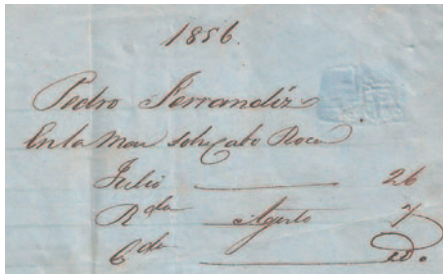 1856.
Pedro Ferrandiz
En la Mar sobre Cabo Roca
Julio 26
Rda Agosto 7
Cda id.